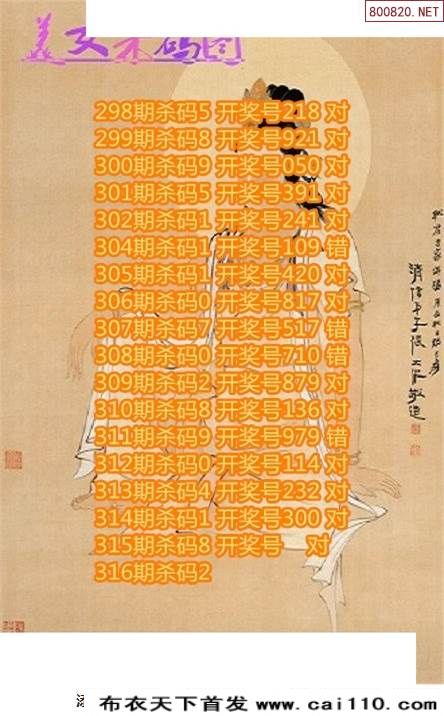 800820.NET
美女杀码图
298期杀码5 开奖号218 对
299期杀码8 开奖号921 对
300期杀码9 开奖号050 对
301期杀码5 开奖号391 对
302期杀码1 开奖号241 对
304期杀码1 开奖号109 错
305期杀码1 开奖号420 对
306期杀码0 开奖号817 对
307期杀码7 开奖号517 错
308期杀码0 开奖号710 错
309期杀码2 开奖号879 对
310期杀码8 开奖号136 对
311期杀码9 开奖号979 错
312期杀码0 开奖号114 对
313期杀码4 开奖号232 对
314期杀码1 开奖号300 对
315期杀码8 开奖号 对
316期杀码2
布衣天下首发 www.cai110.com